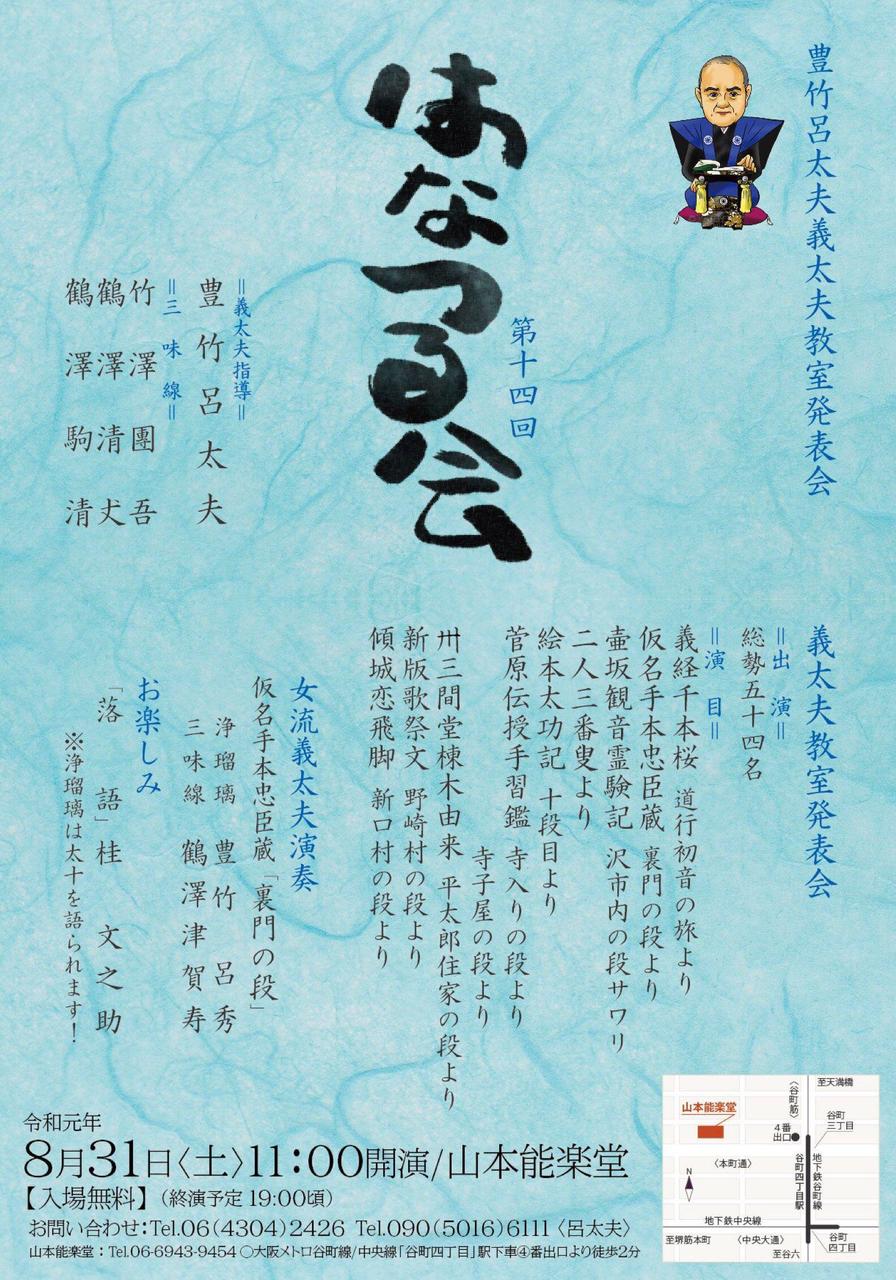 豊竹呂太夫義太夫教室発表会
第十四回
はなつる会
=義太夫指導=
豊竹呂太夫
=三味線=
竹澤團吾
鶴澤清𠀋
鶴澤駒清
義太夫教室発表会
=出演=
総勢五十四名
=演目=
義経千本桜 道行初音の旅より
仮名手本忠臣蔵 裏門の段より
壷坂観音霊験記 沢市内の段サワリ
二人三番叟より
絵本太功記 十段目より
菅原伝授手習鑑 寺入りの段より
寺子屋の段より
卅三間堂棟木由来 平太郎住家の段より
新版歌祭文 野崎村の段より
傾城恋飛脚 新口村の段より
女流義太夫演奏
仮名手本忠臣蔵「裏門の段」
浄瑠璃 豊竹呂秀
三味線 鶴澤津賀寿
お楽しみ
「落語」桂文之助
※浄瑠璃は太十を語られます!
令和元年
8月31日〈土〉11:00開演/山本能楽堂
【入場無料】(終演予定 19:00頃)
お問い合わせ:Tel.06(4304)2426 Tel.090(5016)6111〈呂太夫〉
山本能楽堂:Tel.06-6943-9454 ○大阪メトロ谷町線/中央線「谷町四丁目」駅下車④番出口より徒歩2分
至天満橋
〈谷町筋〉
山本能楽堂
4番出口
谷町三丁目
〈本町通〉
谷町四丁目駅
地下鉄谷町線
N
地下鉄中央線
至堺筋本町
〈中央大通〉
谷町四丁目
至谷六